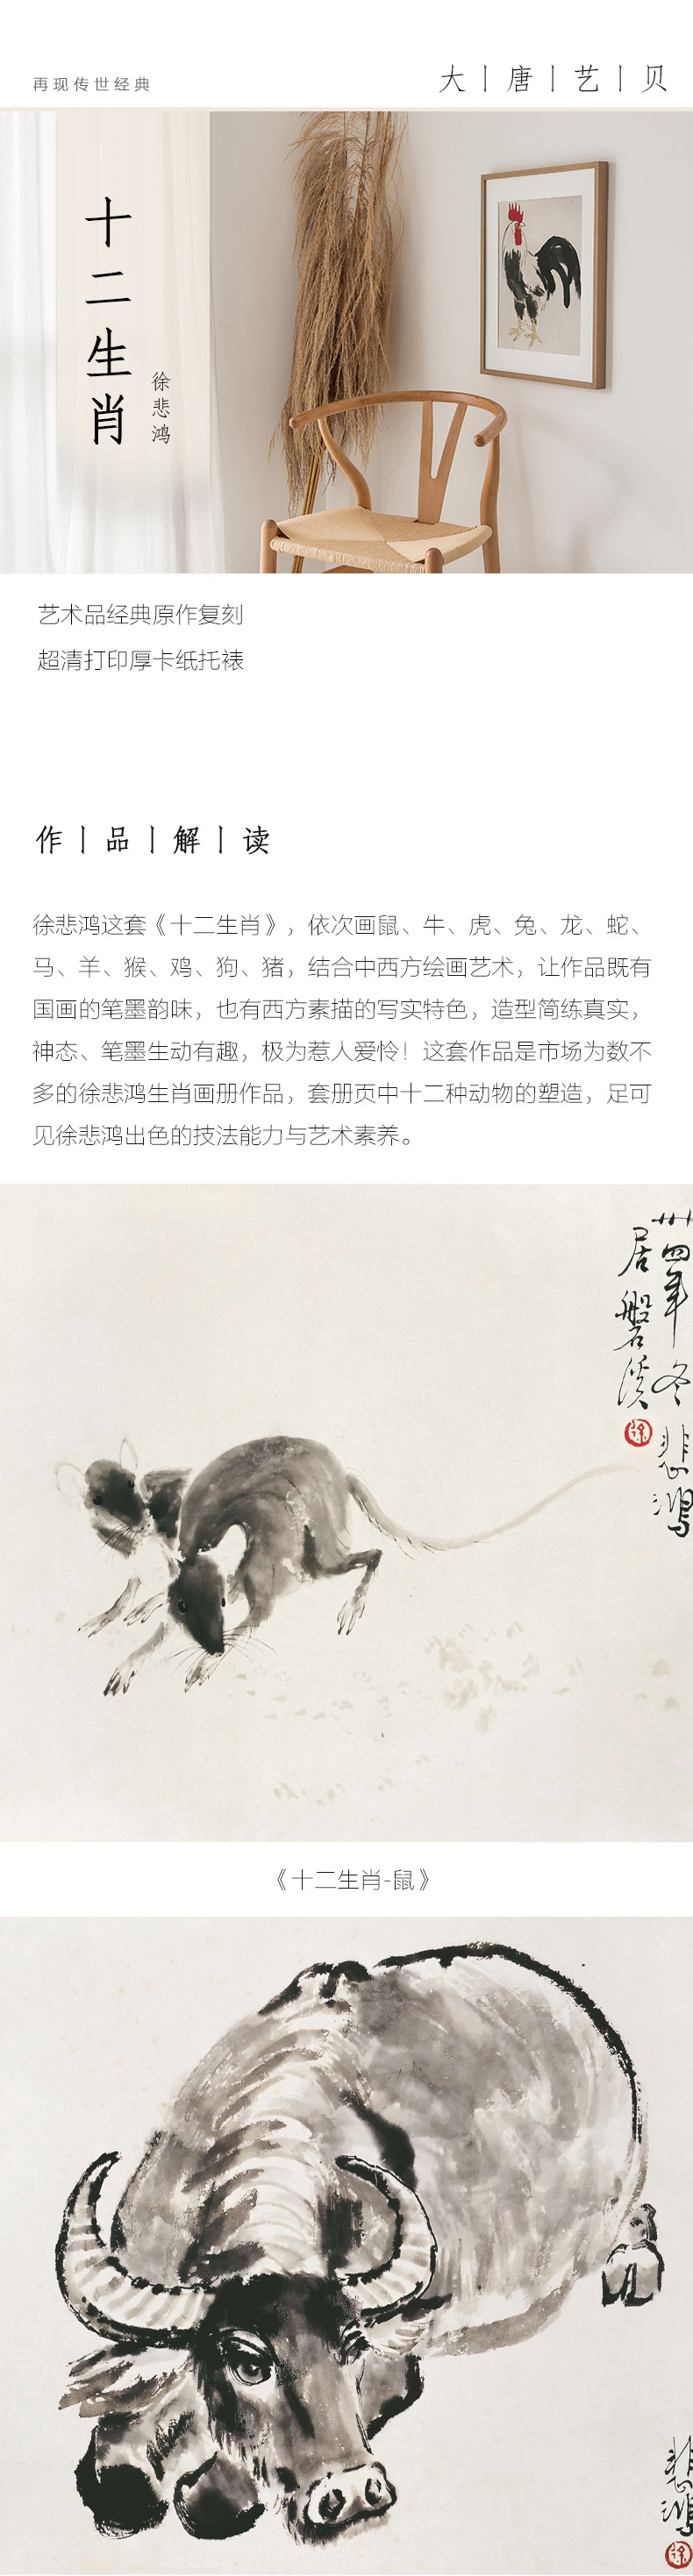 再现传世经典
大丨唐丨艺丨贝
十二生肖
徐悲鸿
艺术品经典原作复刻
超清打印厚卡纸托裱
作丨品丨解丨读
徐悲鸿这套《十二生肖》，依次画鼠、牛、虎、兔、龙、蛇、
马、羊、猴、鸡、狗、猪，结合中西方绘画艺术，让作品既有
国画的笔墨韵味，也有西方素描的写实特色，造型简练真实，
神态、笔墨生动有趣，极为惹人爱怜！这套作品是市场为数不
多的徐悲鸿生肖画册作品，套册页中十二种动物的塑造，足可
见徐悲鸿出色的技法能力与艺术素养。
卅四年冬悲鸿
居磐溪
徐
《十二生肖-鼠》
悲鸿
徐